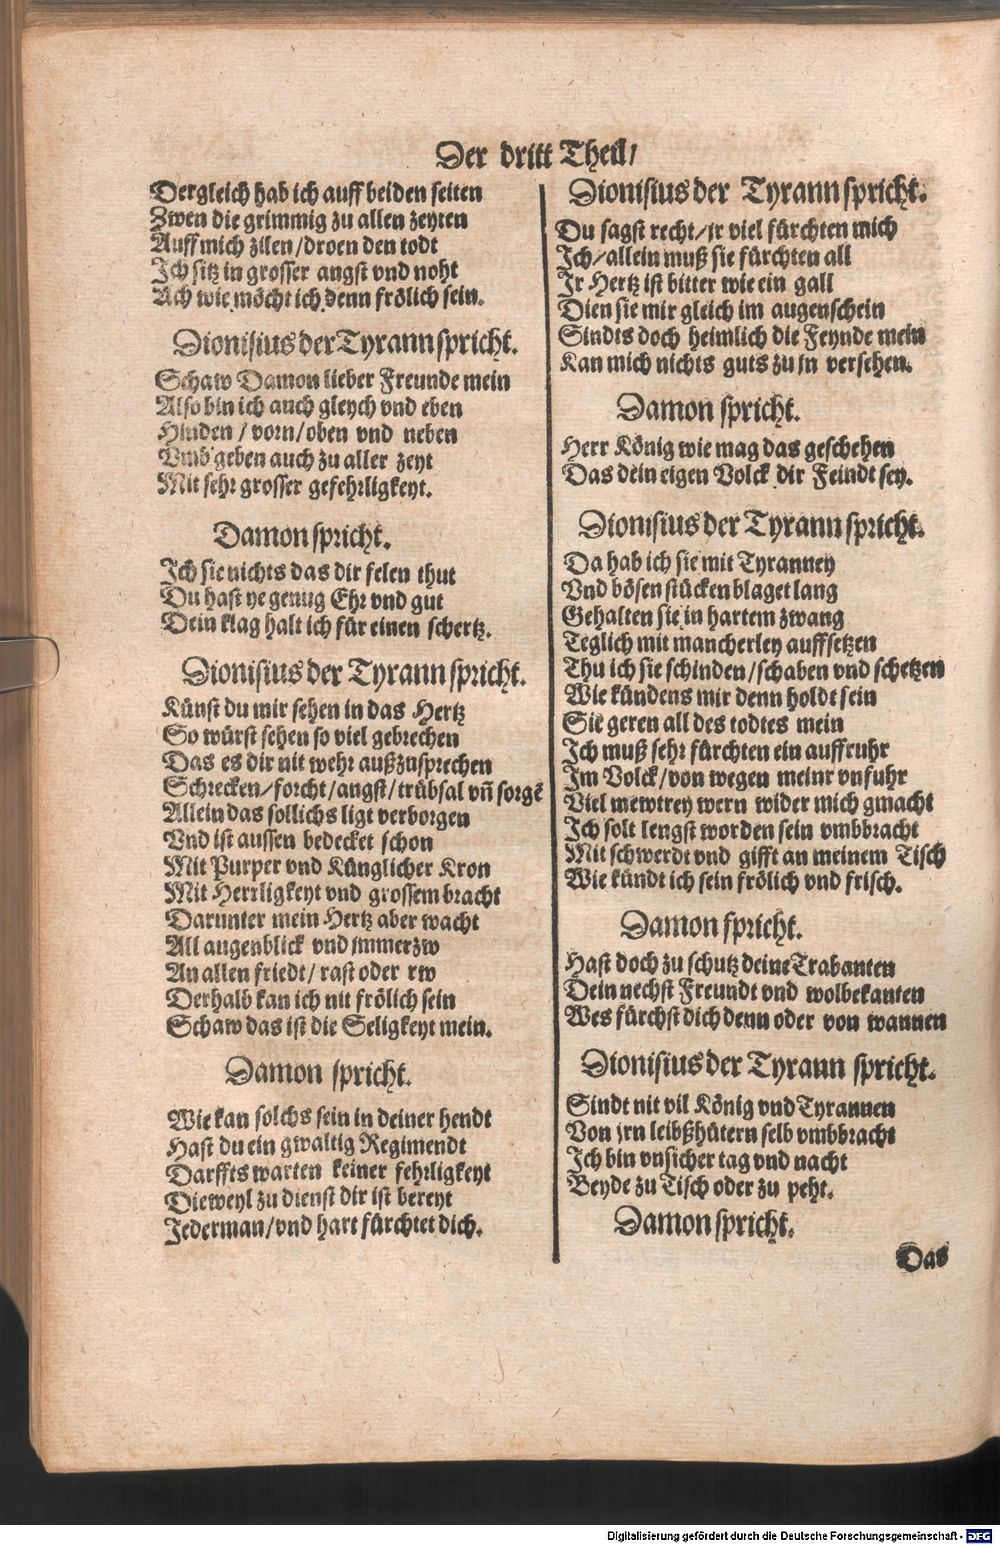 Der dritt Theil/
Dergleich hab ich auff beiden seiten
Zwen die grimmig zu allen zeyten
Auff mich zilen/droen den todt
Ich sitz in grosser angst vnd noht
Ach wie möcht ich denn frölich sein.
Dionisius der Tyrann spricht.
Schaw Damon lieber Freunde mein
Also bin ich auch gleych vnd eben
Hinden / vorn/oben vnd neben
Vmbgeben auch zu aller zeyt
Mit sehr grosser gefehrligkeyt.
Damon spricht.
Ich sie nichts das dir felen thut
Du hast ye genug Ehr vnd gut
Dein klag halt ich für einen schertz.
Dionisius der Tyrann spricht.
Künst du mir sehen in das Hertz
So würst sehen so viel gebrechen
Das es dir nit wehr außzusprechen
Schrecken/forcht/angst/trübsal vñ sorgē
Allein das sollichs ligt verborgen
Vnd ist aussen bedecket schon
Mit Purper vnd Künglicher Kron
Mit Herrligkeyt vnd grossem bracht
Darunter mein Hertz aber wacht
All augenblick vnd jmmerzw
An allen friedt/ rast oder rw
Derhalb kan ich nit frölich sein
Schaw das ist die Seligkeyt mein.
Damon spricht.
Wie kan solchs sein in deiner hendt
Hast du ein gwaltig Regimendt
Darffts warten keiner fehrligkeyt
Dieweyl zu dienst dir ist bereyt
Jederman/vnd hart fürchtet dich.
Dionisius der Tyrann spricht.
Du sagst recht/jr viel fürchten mich
Ich/allein muß sie fürchten all
Jr Hertz ist bitter wie ein gall
Dien sie mir gleich im augenschein
Sindts doch heimlich die Feynde mein
Kan mich nichts guts zu jn versehen.
Damon spricht.
Herr König wie mag das geschehen
Das dein eigen Volck dir Feindt sey.
Dionisius der Tyrann spricht.
Da hab ich sie mit Tyranney
Vnd bösen stücken blaget lang
Gehalten sie in hartem zwang
Teglich mit mancherley auffsetzen
Thu ich sie schinden/schaben vnd schetzen
Wie kündens mir denn holdt sein
Sie geren all des todtes mein
Ich muß sehr fürchten ein auffruhr
Im Volck/von wegen meinr vnfuhr
Viel mewtrey wern wider mich gmacht
Ich solt lengst worden sein vmbbracht
Mit schwerdt vnd gifft an meinem Tisch
Wie kündt ich sein frölich vnd frisch.
Damon spricht.
Hast doch zu schutz deine Trabanten
Dein nechst Freundt vnd wolbekanten
Wes fürchst dich denn oder von wannen
Dionisius der Tyrann spricht.
Sindt nit vil König vnd Tyrannen
Von jrn leibßhütern selb vmbbracht
Ich bin vnsicher tag vnd nacht
Beyde zu Tisch oder zu peht.
Damon spricht.
Das
Digitalisierung gefördert durch die Deutsche Forschungsgemeinschaft - DFG